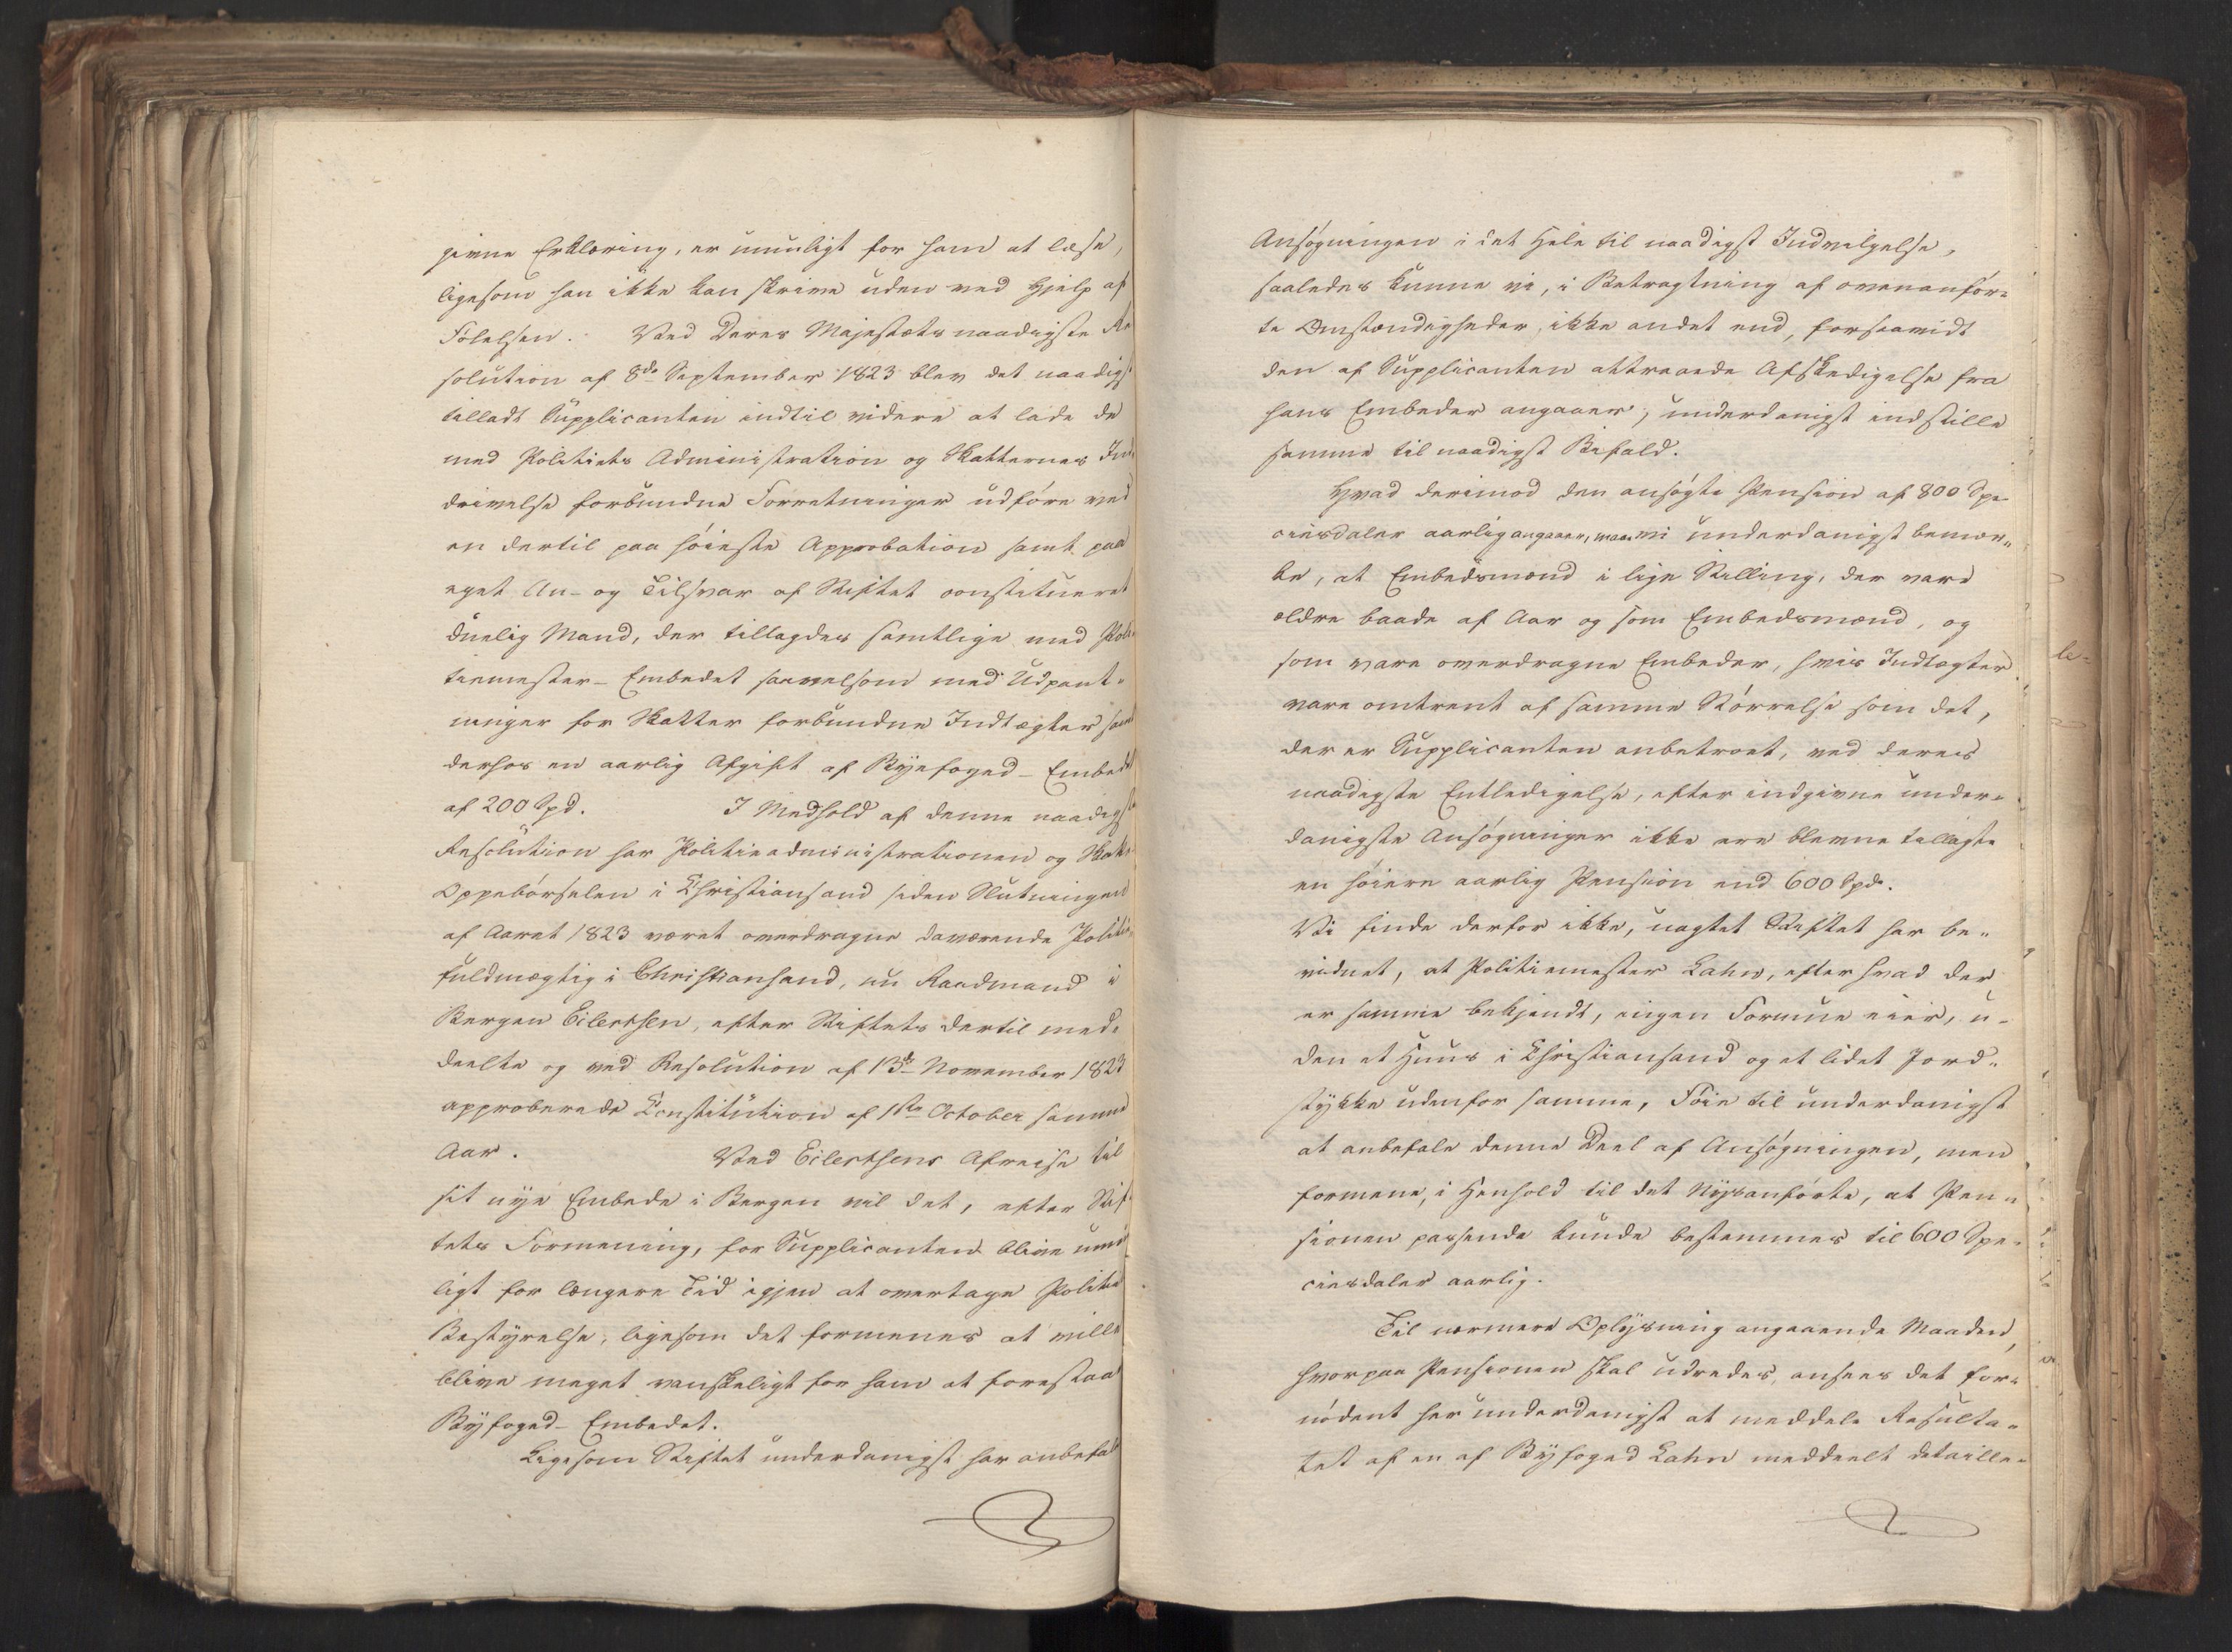 givne Erklæring, er umuligt for ham at læse,
ligesom han ikke kan skrive uden ved Hjelp af
Følelsen. Ved Deres Majestæts naadigste Re
solution af 8de September 1823 blev det naadigst
tilladt Supplicanten indtil videre at lade de
med Politiets Administration og Skatternes Ind
drivelse forbundne Forretninger udføre ved
en dertil paa høieste Approbation samt paa
eget An- og Tilsvar af Stiftet constitueret
duelig Mand, der tillagdes samtlige med Poli
tiemester-Embedet saavelsom med Udpant-
ninger for Skatter forbundne Indtægter samt
derhos en aarlig Afgift af Byefoged-Embedet
af 200 Spd. I Medhold af denne naadigste
Resolution har Politieadministrationen og Skatte
Oppebørselen i Christiansand siden Slutningen
af Aaret 1823 været overdragne daværende Politie-
fuldmægtig i Christiansand, nu Raadmand i
Bergen Eilertsen, efter Stiftets dertil med-
deelte og ved Resolution af 13de November 1823
approberede Constitution af 1ste October samme
Aar. Ved Eilertsens Afreise til
sit nye Embede i Bergen vil det, efter Stif
tets Formening, for Supplicanten blive umu
ligt for længere Tid igjen at overtage Politie
Bestyrelse, ligesom det formenes at ville
blive meget vanskeligt for ham at forestaae
Byfoged-Embedet.
Ligesom Stiftet underdanigst har anbefalet
Ansøgningen i det Hele til naadigst Indvilgelse,
saaledes kunne vi, i Betragtning af ovenanfør-
te Omstændigheder, ikke andet end, forsaavidt
den af Supplicanten attraaede Afskedigelse fra
hans Embeder angaaer, underdanigst indstille
samme til naadigst Bifald.
Hvad derimod den ansøgte Pension af 800 Spe-
ciesdaler aarlig angaaer, maae vi underdanigst bemær-
ke, at Embedsmænd i lige Stilling, der vare
ældre baade af Aar og som Embedsmænd, og
som vare overdragne Embeder, hvis Indtægter
vare omtrent af samme Størrelse som det,
der er Supplicanten anbetroet, ved deres
naadigste Entledigelse, efter indgivne under-
danigste Ansøgninger ikke ere blevne tillagte
en høiere aarlig Pension end 600 Spd.
Vi finde derfor ikke, uagtet Stiftet har be-
vidnet, at Politiemester Lahn, efter hvad der
er samme bekjendt, ingen Formue eier, u-
den et Huus i Christiansand og et lidet Jord-
stykke udenfor samme, Føie til underdanigst
at anbefale denne Deel af Ansøgningen, men
formene, i Henhold til det Nysanførte, at Pen-
sionen passende kunde bestemmes til 600 Spe-
ciesdaler aarlig.
Til nærmere Oplysning angaaende Maaden,
hvorpaa Pensionen skal udredes, ansees det for-
nødent her underdanigst at meddele Resulta-
tet af en af Byfoged Lahn meddeelt detaille-